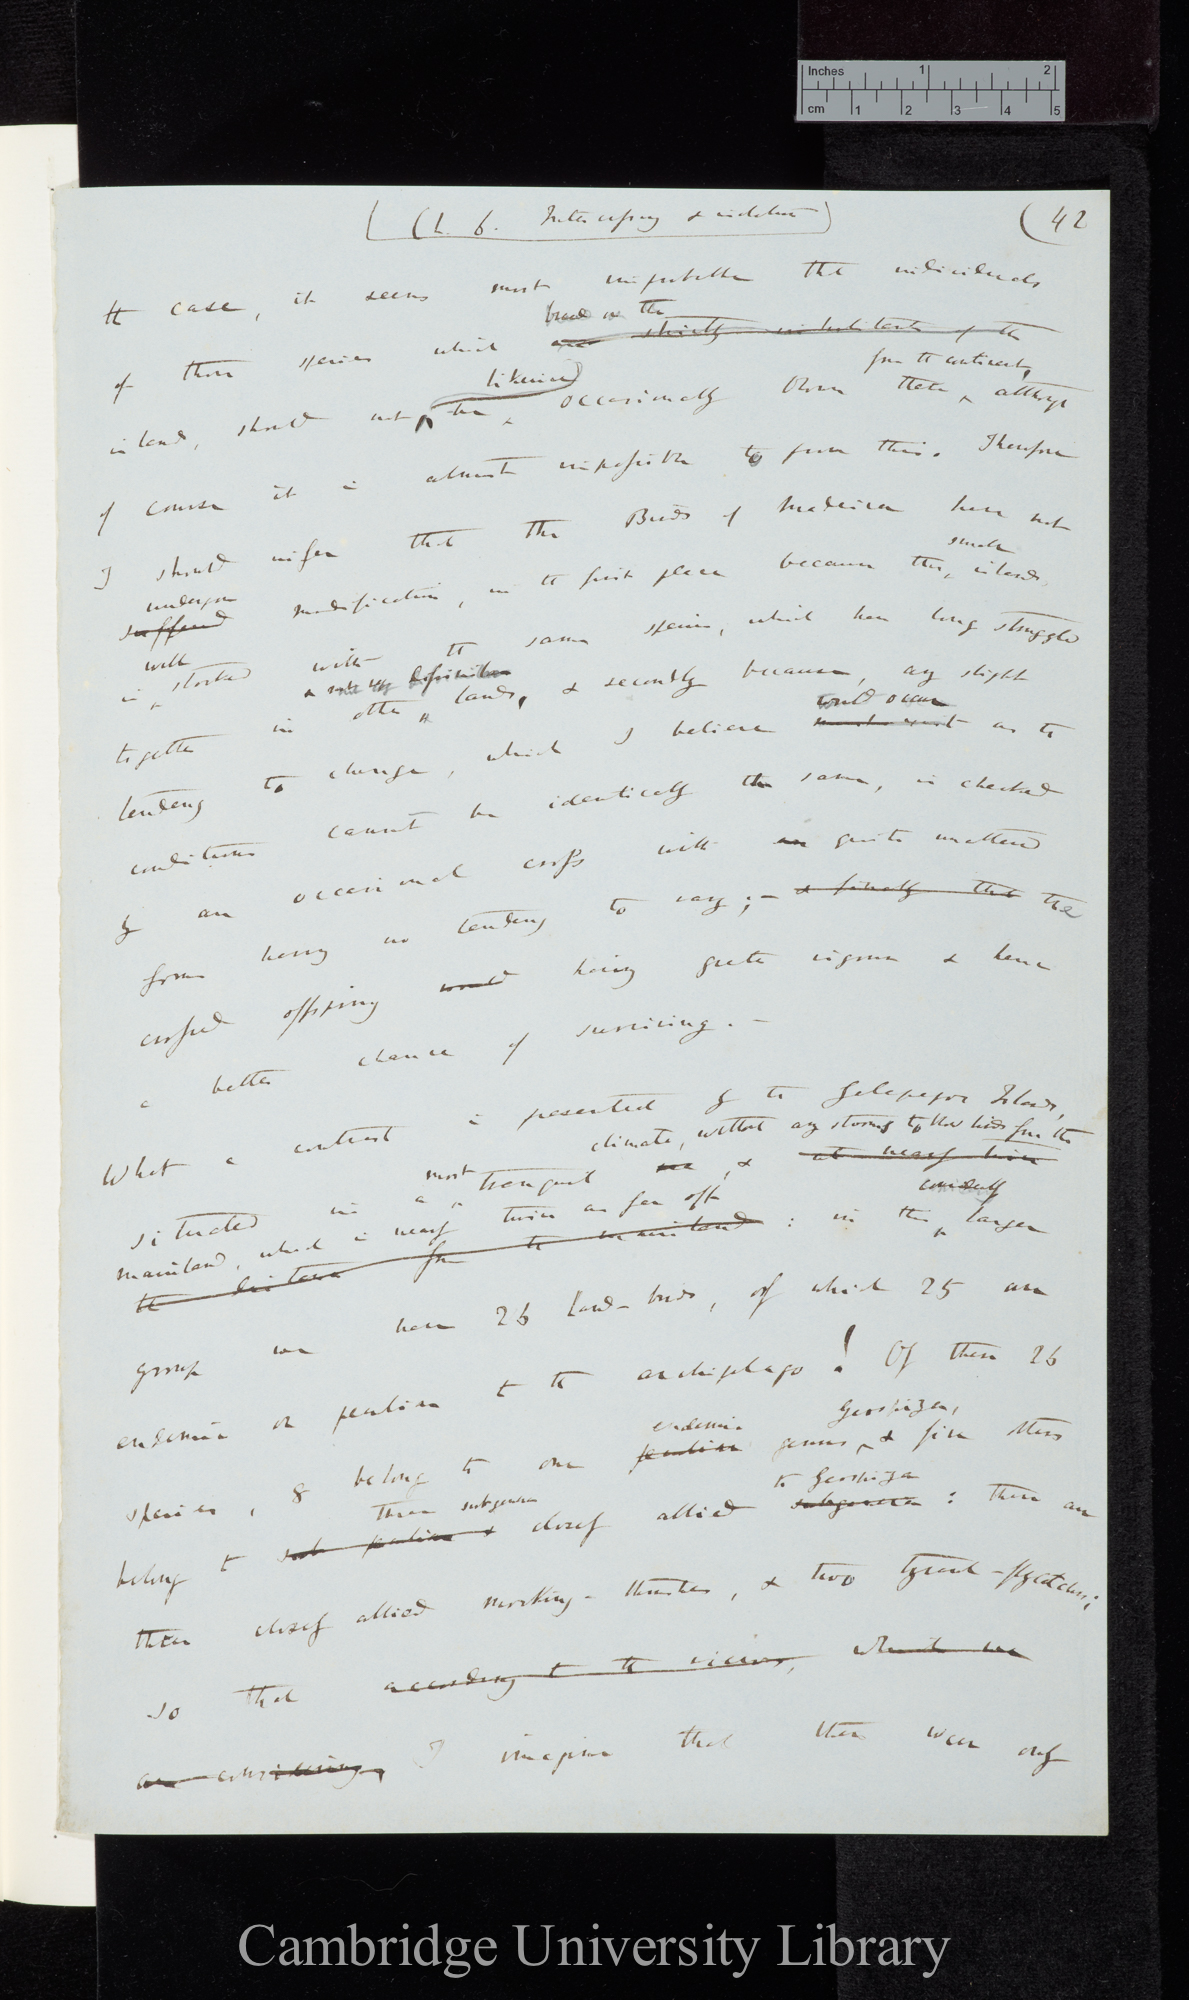 Inches 1 2
cm 1 2 3 4 5
(Ch. 6. Intercrossing & isolation) (42
the case, it seems most improbable that individuals
breed on the
of those species which are strictly inhabitants of the
likewise from the continent,
island, should not, be, occasionally blown there, although
of course it is almost impossible to prove this. Therefore
I should infer that the Birds of Madeira have not
undergone small
suffered modification, in the first place because the, islands,
well
is, stocked with the same species, which have long struggled
together in other lands, & secondly because, any slight
could occur
tendency to change, which I believe must exist as the
conditions cannot be identically the same, is checked
by an occasional cross with an quite unaltered
form having no tendency to vary; – & finally that the
crossed offspring would having greater vigour & hence
a better chance of surviving. –
What a contrast is presented by the Galapagos Islands,
climate, without any storms to blow birds from the
situated in a most tranquil sea, & at nearly twice
mainland, which is nearly twice as far off
considerably
the distance from the mainland: in the, larger
group we have 26 land-birds, of which 25 are
endemic or peculiar to the archipelago! Of these 26
endemic Geospiza,
species, 8 belong to one peculiar genus, & five others
three subgenera to Geospiza
belong to sub peculiar & closely allied subgenera: there are
three closely allied mocking-thrushes, & two tyrant-flycatchers;
so that according to the views, which we
are considering, I imagine that there were only
Cambridge University Library